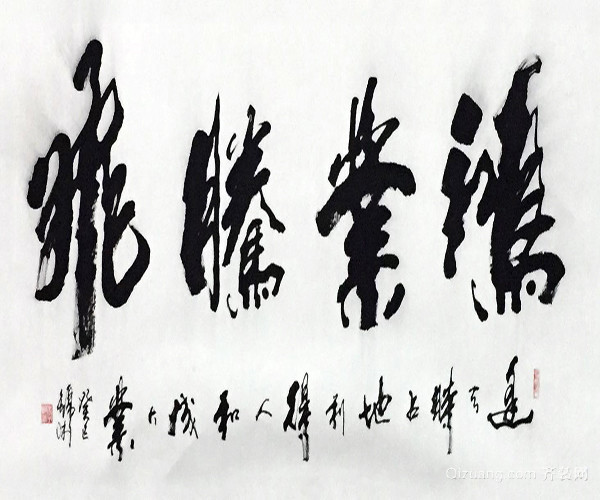 鴻業騰飛
逢天時占地利得人和成大業
癸巳
Qizuang.com 齐装网